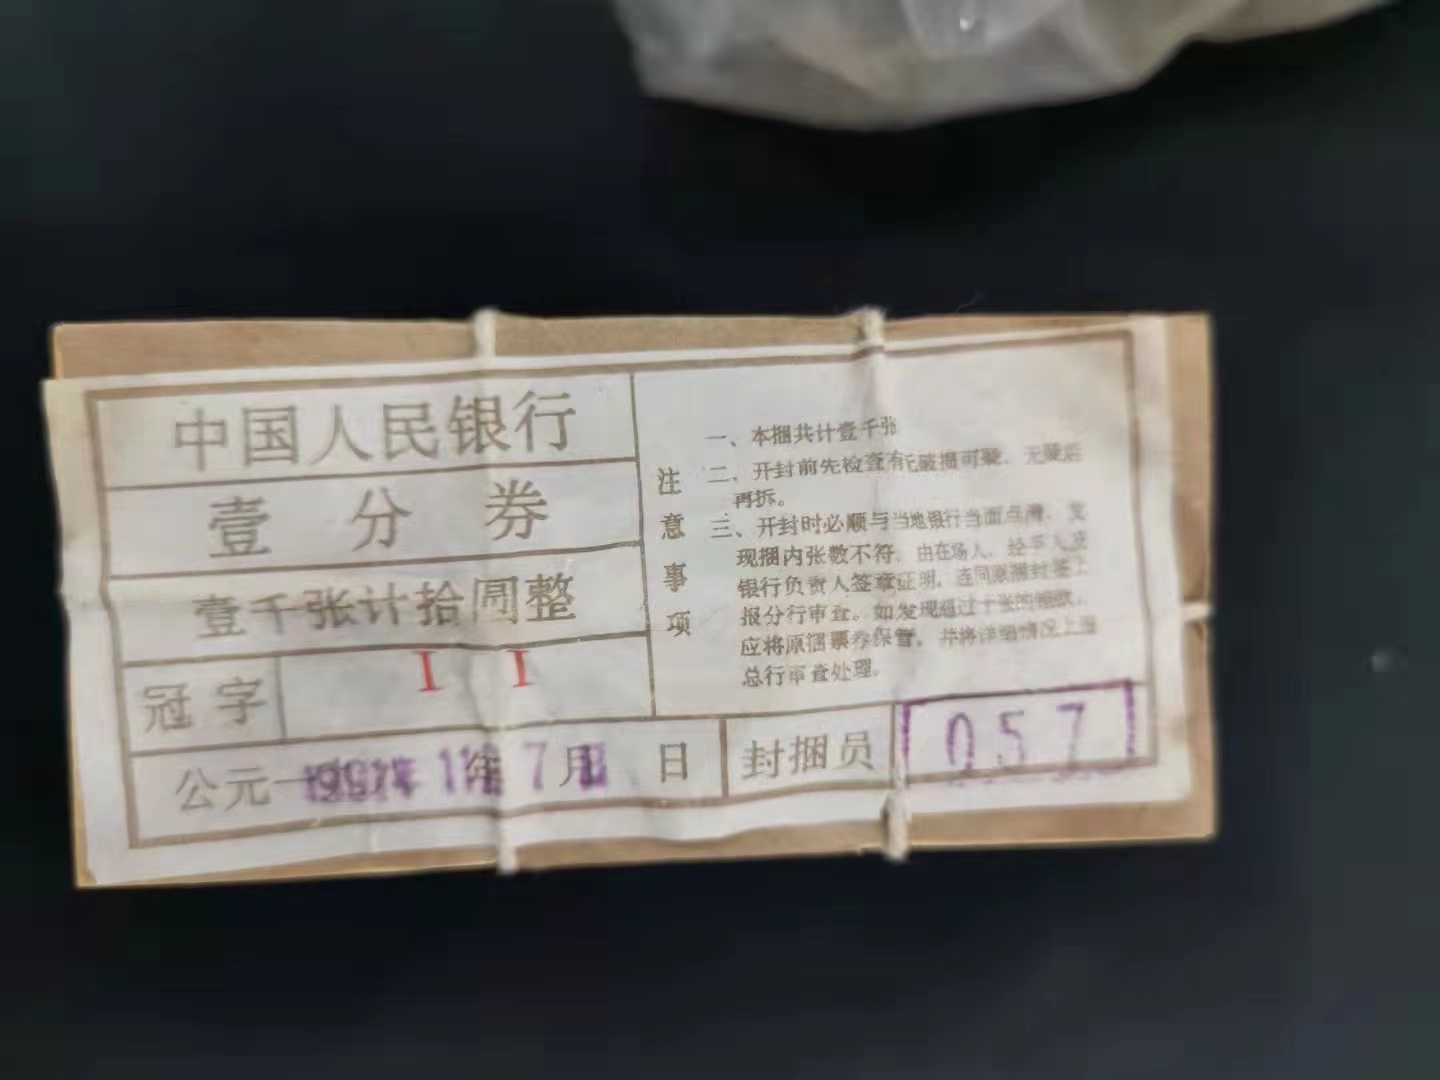 中国人民银行
壹分券
壹千张计拾圆整
冠字 I I
公元一 年 7 月 日
封捆员 057
注意事项
一、本捆共计壹千张
二、开封前先检查有无破损可疑、无疑后
再拆。
三、开封时必须与当地银行当面点清、发
现捆内张数不符、由在场人、经手人及
银行负责人签章证明，连同原捆封签上
报分行审查。如发现超过十张的错款，
应将原捆票券保管，并将详细情况上报
总行审查处理。